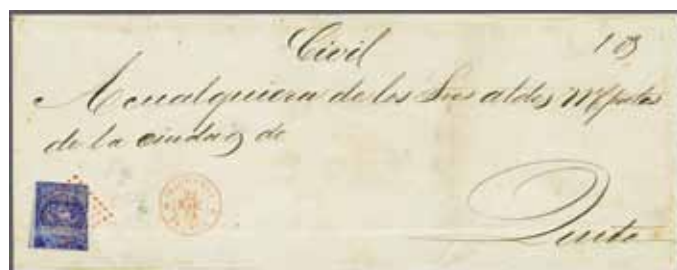 Civil
A cualquiera de los Sres aldes Mpales
de la ciudad de
Quito